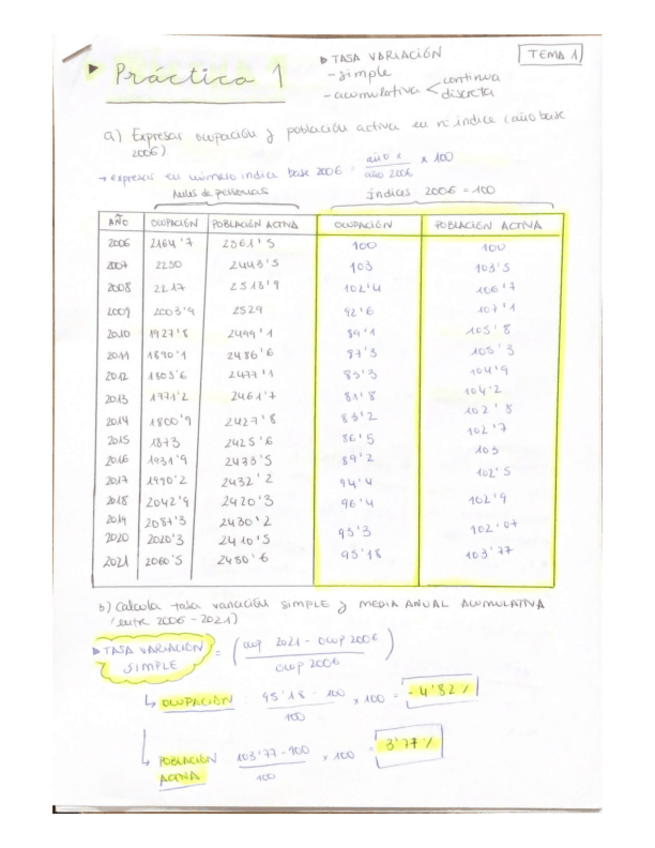 ▶ Práctica 1
▶ TASA VARIACIÓN
- simple
- acumulativa < continua
discreta
TEMA 1
a) Expresar ocupación y población activa en nº índice (año base
2006)
→ expresar en número indice base 2006 = año x / año 2006 x 100
Miles de personas
índices 2006 = 100
AÑO OCUPACIÓN POBLACIÓN ACTIVA OCUPACIÓN POBLACIÓN ACTIVA
2006 2164'7 2361'5 100 100
2007 2230 2443'5 103 103'5
2008 2217 2518'9 102'4 106'7
2009 2003'9 2529 92'6 107'1
2010 1927'8 2499'1 89'1 105'8
2011 1890'1 2486'6 87'3 105'3
2012 1803'6 2477'1 83'3 104'9
2013 1771'2 2461'7 81'8 104'2
2014 1800'9 2427'8 83'2 102'8
2015 1873 2425'6 86'5 102'7
2016 1931'9 2433'5 89'2 103
2017 1990'2 2432'2 94'4 102'5
2018 2042'9 2420'3 96'4 102'9
2019 2087'3 2430'2
2020 2020'3 2410'5 93'3 102'07
2021 2060'5 2450'6 95'18 103'77
b) Calcula tasa variación SIMPLE y MEDIA ANUAL ACUMULATIVA
(entre 2006 - 2021)
▶ TASA VARIACIÓN SIMPLE = (ocup 2021 - ocup 2006 / ocup 2006)
↳ OCUPACIÓN : 95'18 - 100 / 100 x 100 = - 4'82 %
↳ POBLACIÓN ACTIVA 103'77 - 100 / 100 x 100 = 3'77 %